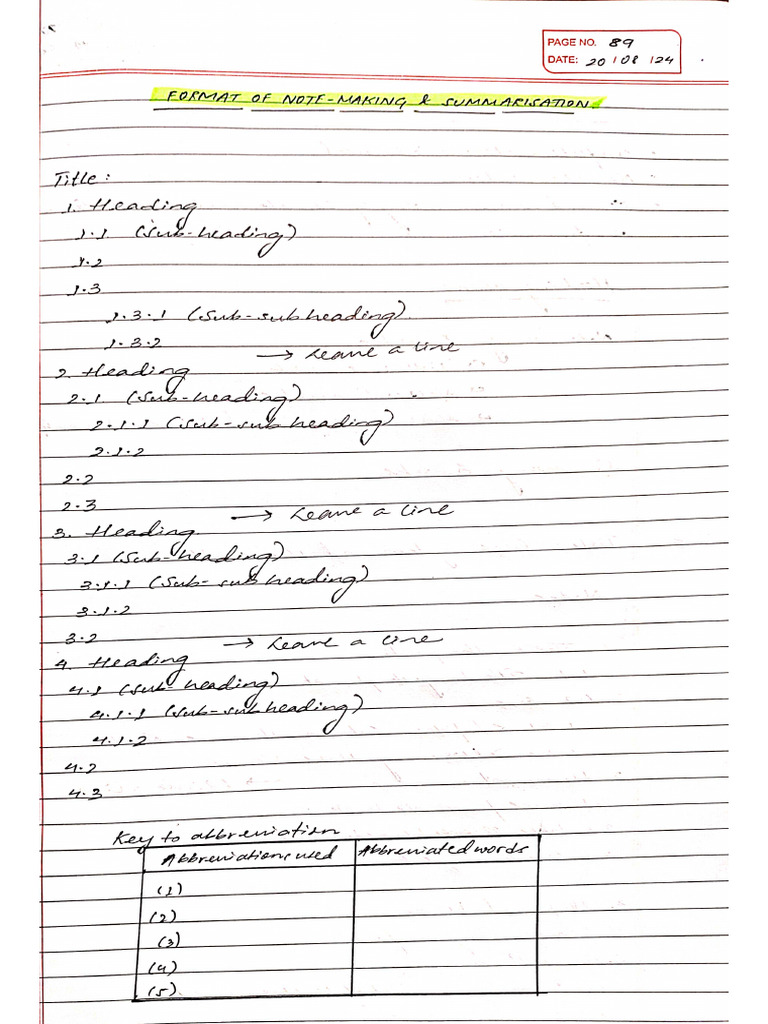 PAGE NO. 89
DATE: 20 / 08 / 24
FORMAT OF NOTE-MAKING & SUMMARISATION.
Title:
1. Heading
1.1 (Sub-heading)
1.2
1.3
1.3.1 (Sub-subheading)
1.3.2
→ Leave a line
2. Heading
2.1 (Sub-heading)
2.1.1 (Sub-sub heading)
2.1.2
2.2
2.3
→ Leave a line
3. Heading
3.1 (Sub-heading)
3.1.1 (Sub-sub heading)
3.1.2
3.2
→ Leave a line
4. Heading
4.1 (Sub-heading)
4.1.1 (Sub-sub heading)
4.1.2
4.2
4.3
Key to abbreviation
Abbreviations used Abbreviated words
(1)
(2)
(3)
(4)
(5)